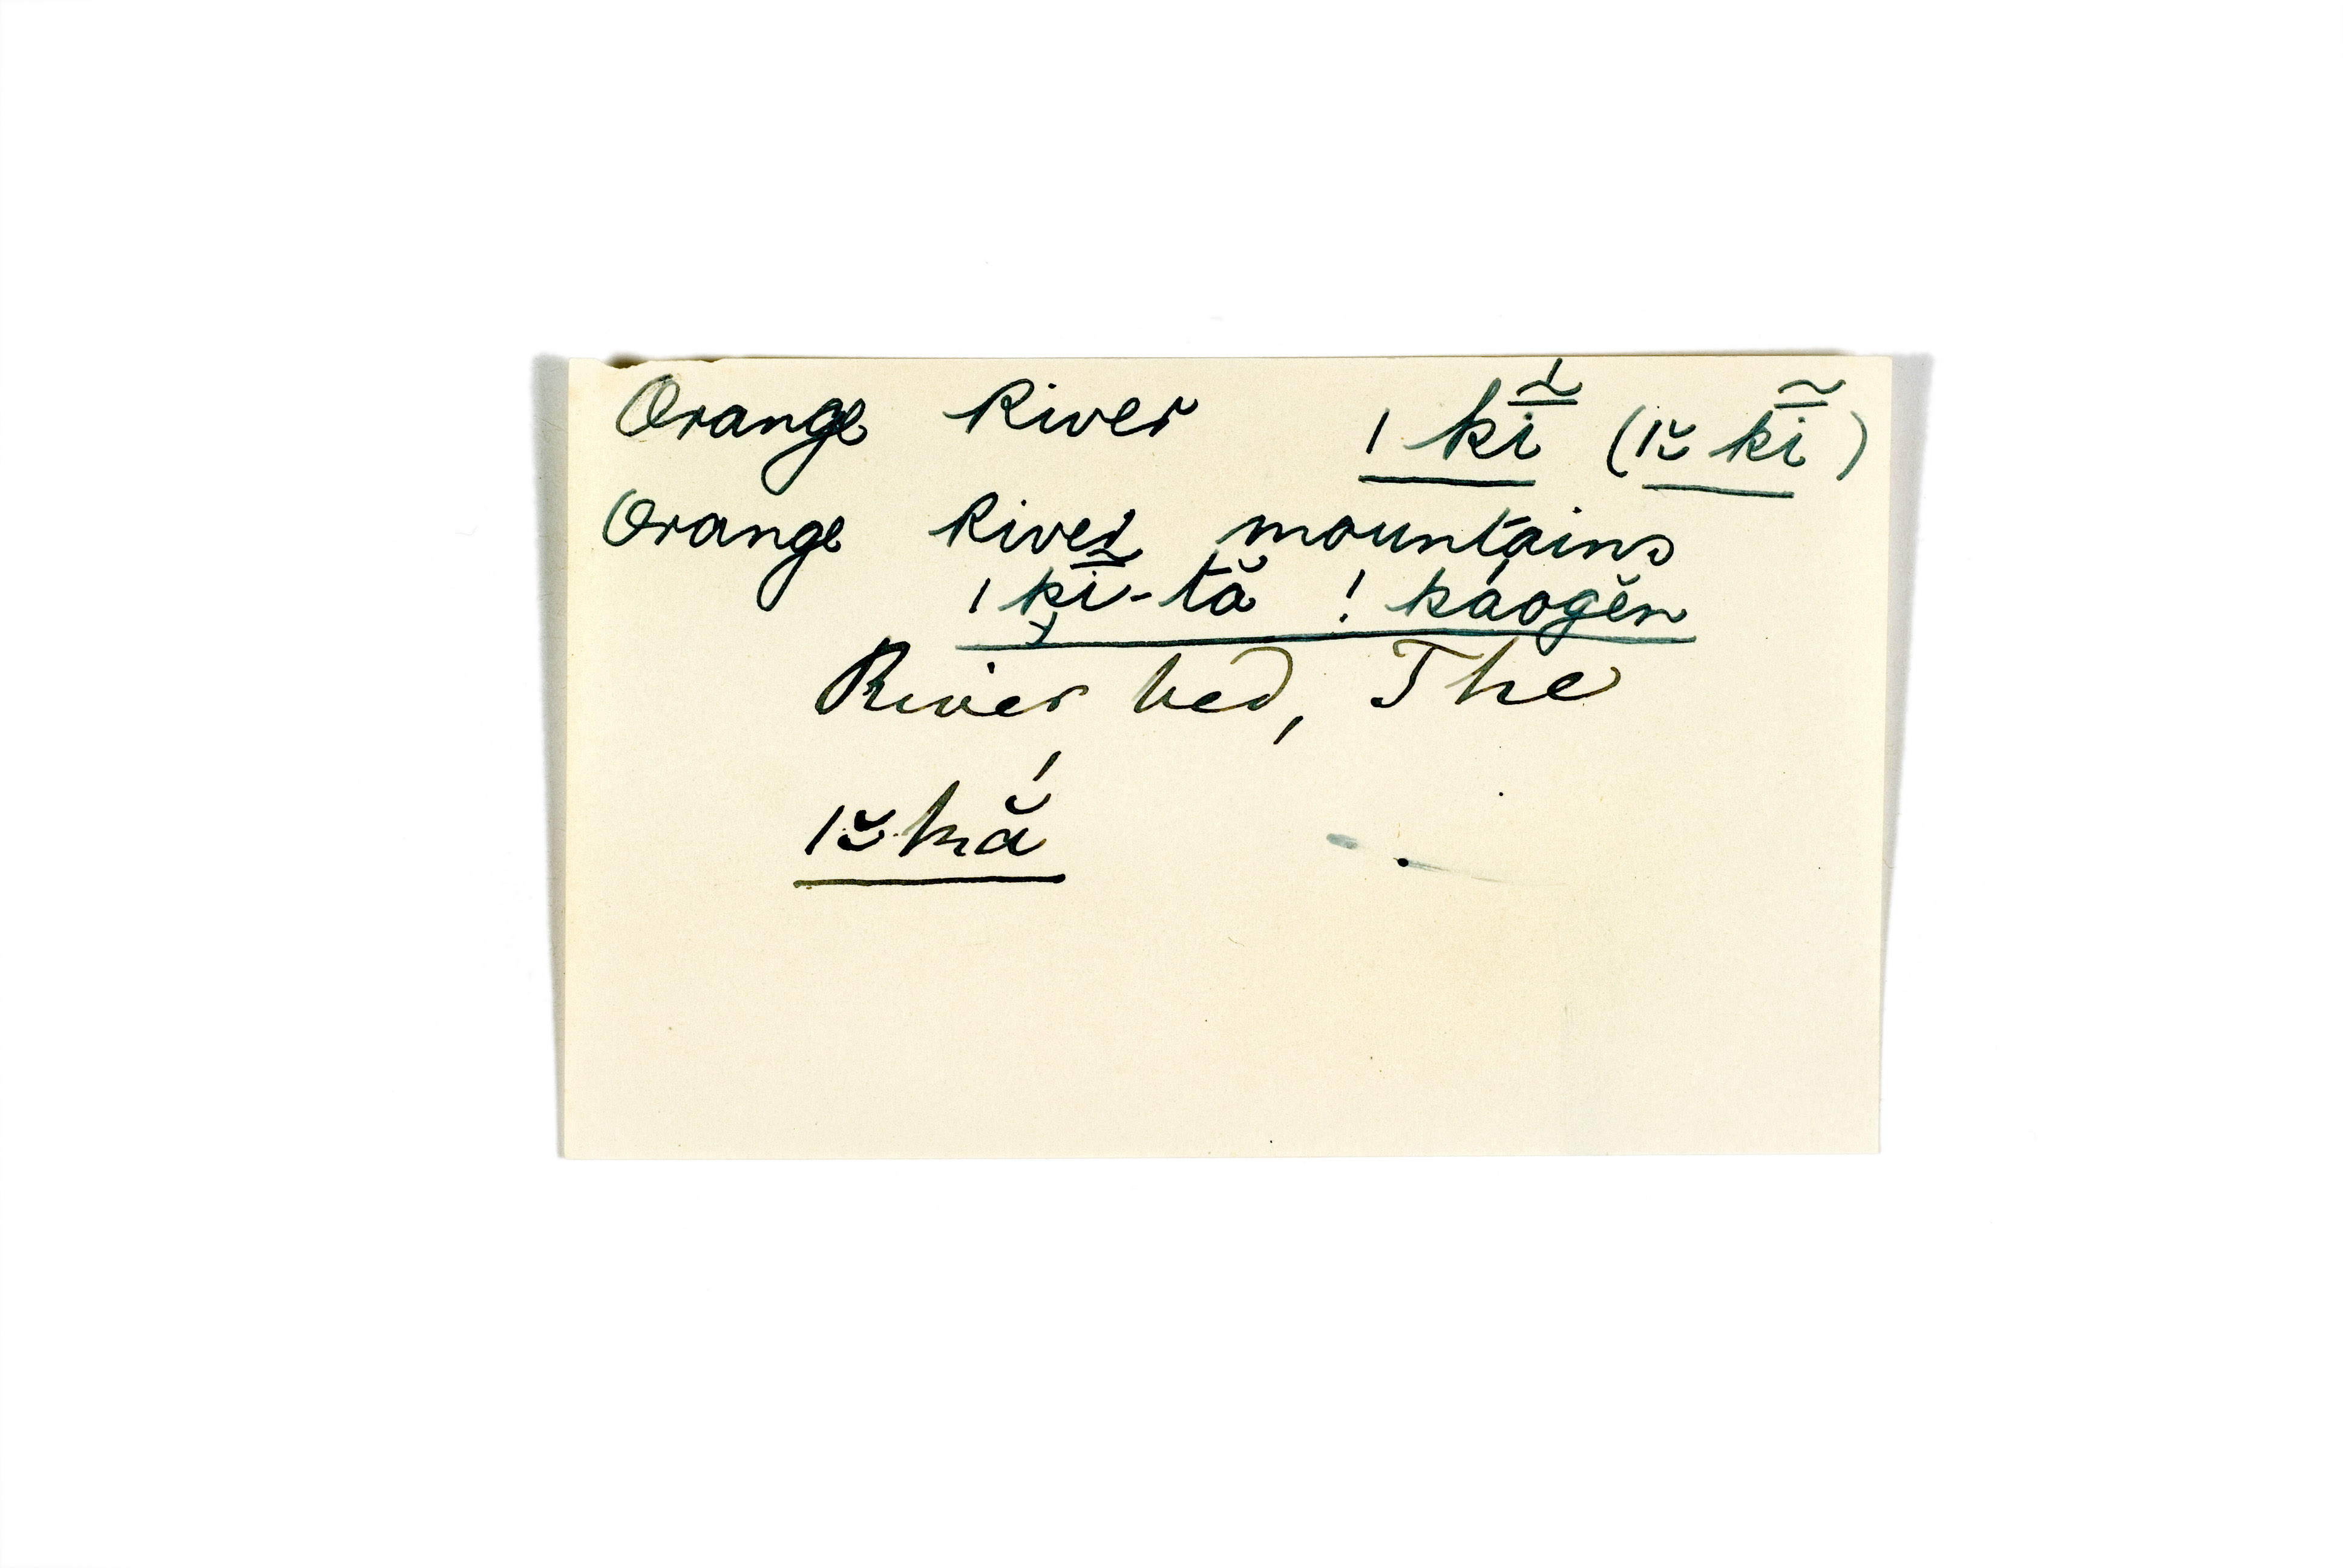 Orange River ǀkī̃́ (ǀᴗ̆kī̃)
Orange River mountains
ǀkī̃-tă ! káogĕn
River bed, The